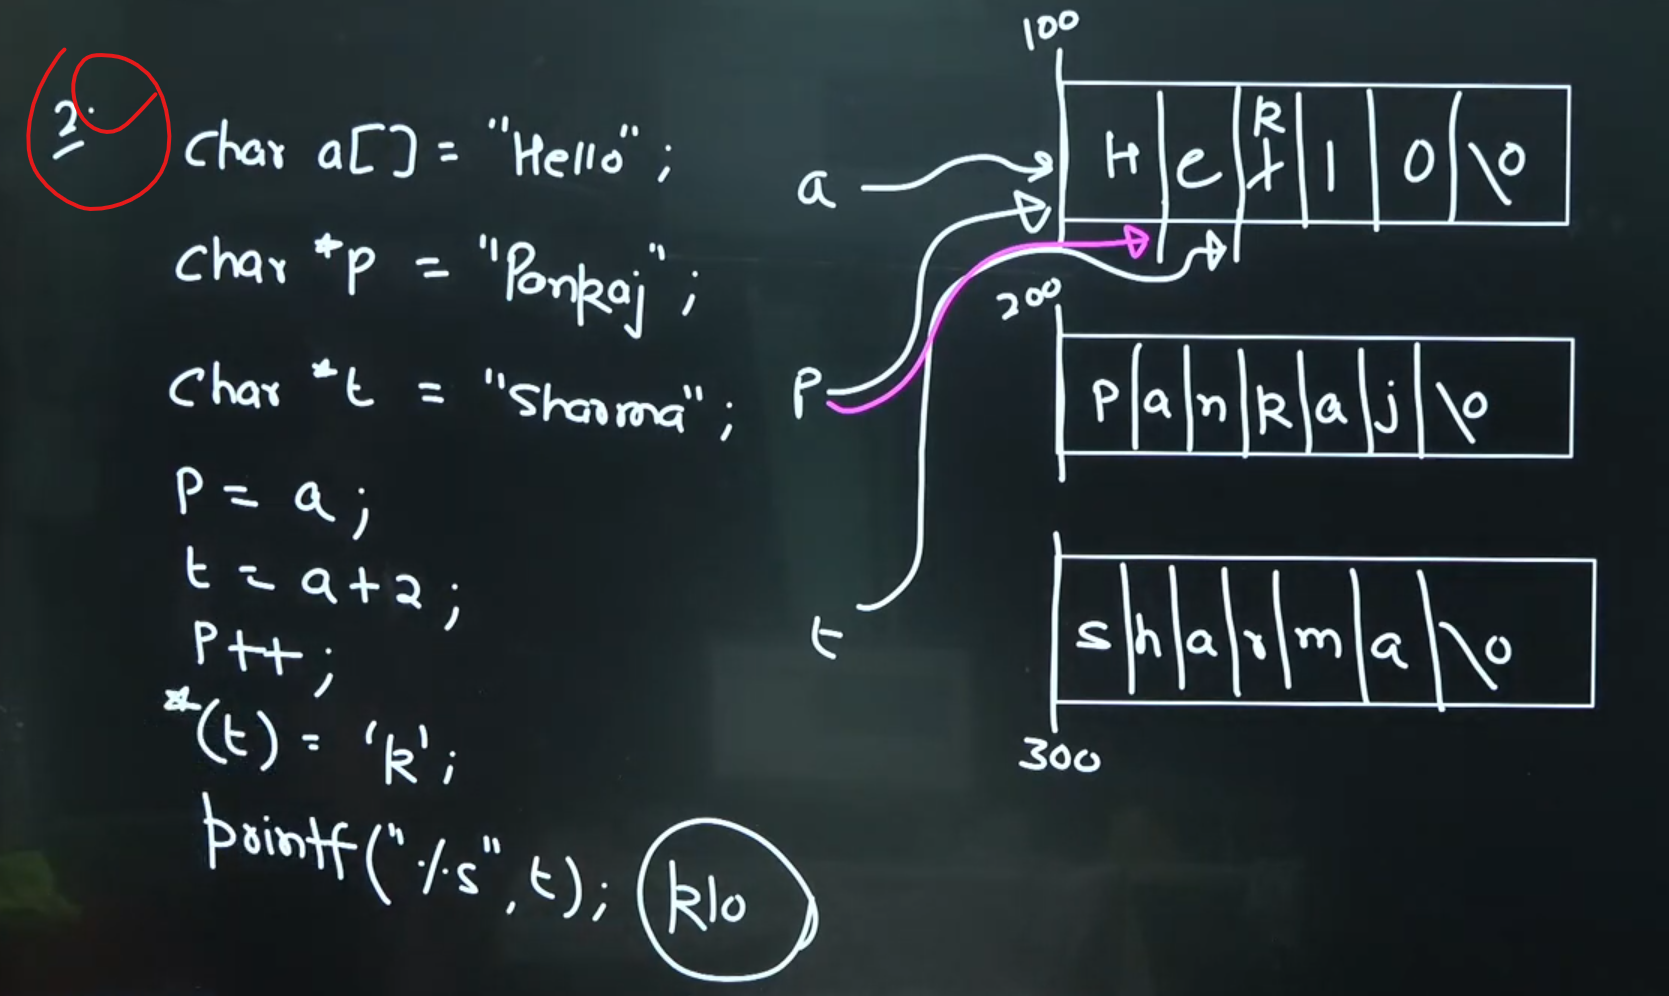 2.
char a[] = "Hello";
char *p = "Pankaj";
char *t = "Sharma";
P = a;
t = a+2;
P++;
*(t) = 'k';
printf("%s", t); klo
100
a
H e l k l o \0
200
P
P a n k a j \0
t
s h a r m a \0
300